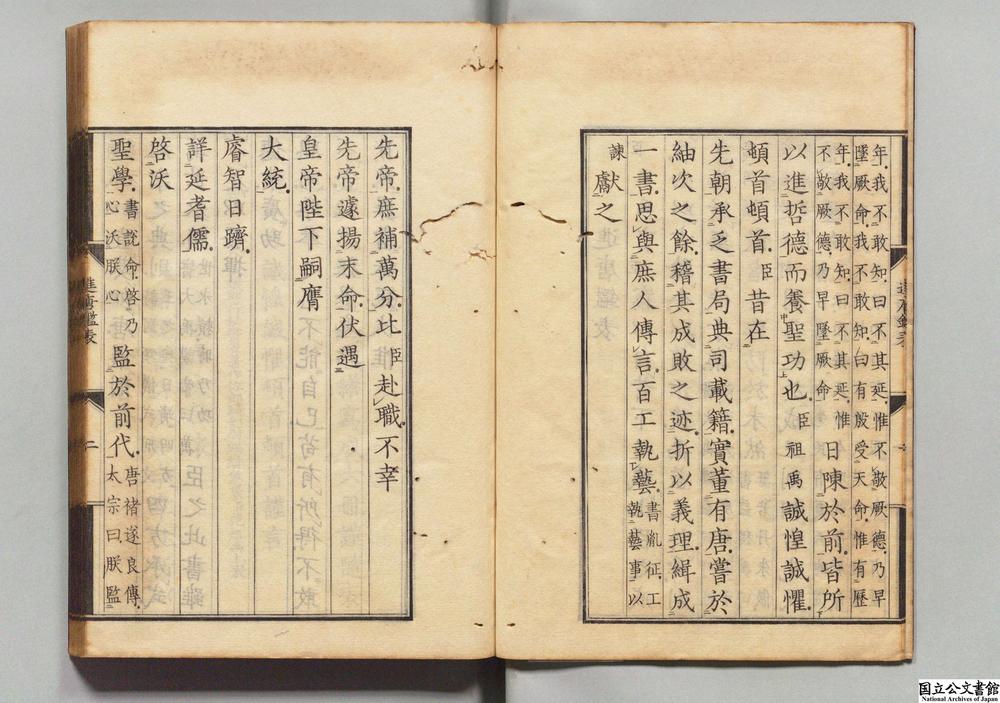 年我不敢知曰不其延惟不敬厥德乃早
墜厥命我不敢知曰有殷受天命惟有歷
年我不敢知曰不其延惟
不敬厥德乃早墜厥命
日陳於前皆所
以進哲德而養聖功也臣祖禹誠惶誠懼
頓首頓首臣昔在
先朝承乏書局典司載籍實董有唐嘗於
紬次之餘稽其成敗之迹折以義理緝成
一書思與庶人傳言百工執藝
書胤征工
執藝事以
諫
獻之
先帝庶補萬分比臣赴職不幸
先帝遽揚末命伏遇
皇帝陛下嗣膺
大統
睿智日躋
詳延耆儒
啓沃
聖學
書說命啓乃
心沃朕心
監於前代
唐褚遂良傳
太宗曰朕監
進唐鑑表
二
国立公文書館
National Archives of Japan